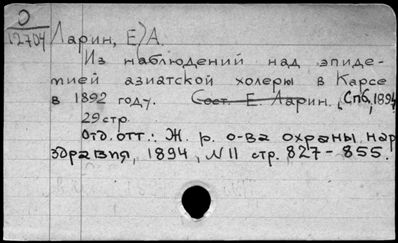 О
12704
Ларин, Е)А.
Из наблюдений над эпиде-
мией азиатской холеры в Карсе
в 1892 году. Сост. Е. Ларин. Спб, 1894
29 стр.
Отд. отт.: Ж. р. о-ва охраны нар
здравия, 1894, N 11 стр. 827-855.